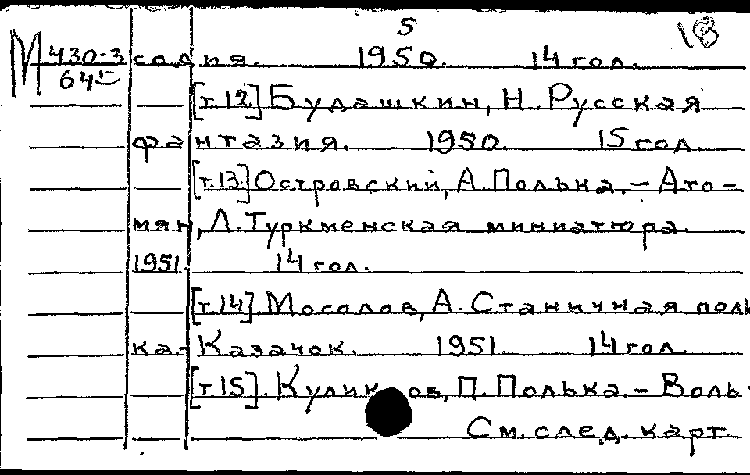 5
18
М 430-3 содия. 1950. 14 гол.
645
[т.12] Будашкин, Н. Русская
фантазия. 1950. 15 гол
[т.13] Островский, А. Полька. - Ато-
мян, Л. Туркменская миниатюра.
1951. 14 гол.
[т.14] Мосолов, А. Станичная поль
ка. - Казачок. 1951. 14 гол.
[т.15]. Куликов, П. Полька. - Воль-
См. след. карт